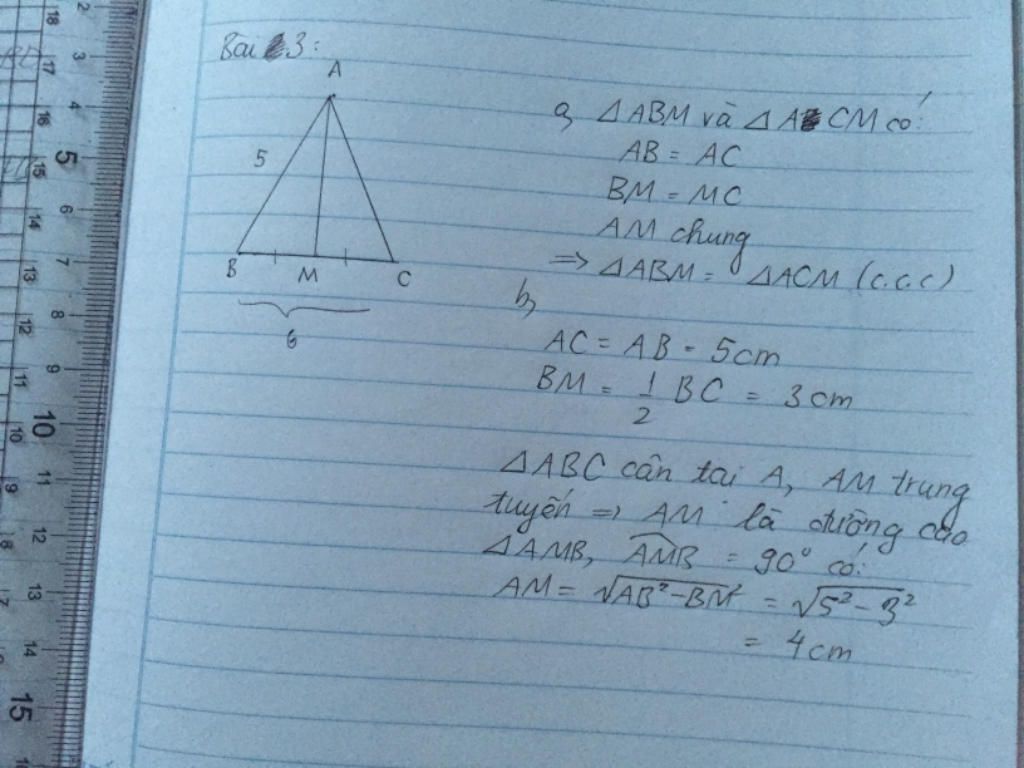 Bài 3:
A
5
B
M
C
6
a, △ABM và △ACM có:
AB = AC
BM = MC
AM chung
=> △ABM = △ACM (c.c.c)
b,
AC = AB = 5cm
BM = 1/2 BC = 3cm
△ABC cân tai A, AM trung
tuyến => AM là đường cao
△AMB, \widehat{AMB} = 90° có:
AM = √(AB² - BM²) = √(5² - 3²)
= 4cm
18
17
16
15
14
13
12
11
10
9
8
7
2
3
4
5
6
7
8
9
10
11
12
13
14
15